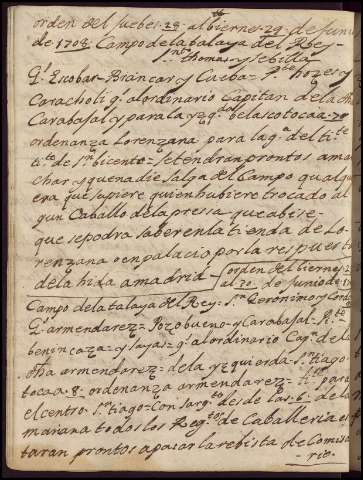 orden del Juebes 28 al biernes 29 de Junio
de 1708 Campo de la talaya del Rey
Sn to Thomas y Sebilla
Gl Escobar Brancas y Cueba = Rto hozes y
Caracholi gl al ordinario Capitan de la
Carabajal y para la yzqda belasco toca a 70
ordenanza Lorenzana para la gª del tite
Rto de Sn bicente = se tendran prontos a
char y que nadie salga del Campo qualq
era que supiere quien hubiere trocado al
gun Caballo de la pressa que abise
que se podra saber en la tienda de Lo
renzana o en palacio por la respues
de la hida a madrid
orden del biernes 2
al 30 de Junio de
Campo de la talaya del Rey = Sn Geronimo y Cord
Gl armendarez Pozobueno y Carabajal = Rto
benincaza = y sayas = gl al ordinario Capn de la
armendarez = de la yzquierda Stiago
toca a 8 ordenanza armendarez = Rto para
el centro Stiago = Con sargto desde las 6 de la
mañana todos los Regtos de Caballeria es
taran prontos a pasar la rebista de Comisa
rio